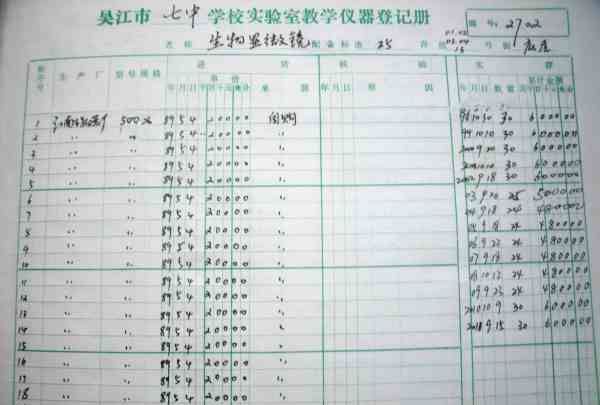 吴江市 七中 学校实验室教学仪器登记册
编号: 2702
名称 生物显微镜 配备标准 25
生产厂 型号规格 进 货 核 销 实存
年月日 单价 来源 年月日 原因 年月日 数量 累计金额
1 500X 89 5 4 200 00 10 30 30 6000 00
2 〃 〃 89 5 4 200 00 〃 99 10 10 30 6000 00
3 〃 〃 89 5 4 200 00 〃 2000 9 20 30 6000 00
4 〃 〃 89 5 4 200 00 〃 10 10 30 6000 00
5 〃 〃 89 5 4 200 00 〃 2002 9 18 30 6000 00
6 〃 〃 89 5 4 200 00 〃 03 9 20 25 5000 00
7 〃 〃 89 5 4 200 00 〃 9 18 24 4800 00
8 〃 〃 89 5 4 200 00 〃 9 18 24 4800 00
9 〃 〃 89 5 4 200 00 〃 06 9 22 24 4800 00
10 〃 〃 89 5 4 200 00 〃 07 9 18 24 4800 00
11 〃 〃 89 5 4 200 00 〃 08 10 12 24 4800 00
12 〃 〃 89 5 4 200 00 〃 09 9 23 24 4800 00
13 〃 〃 89 5 4 200 00 〃 2010 10 9 30 6000 00
14 〃 〃 89 5 4 200 00 〃 9 15 30 6000 00
15 〃 〃 89 5 4 200 00 〃
16 〃 〃 89 5 4 200 00 〃
17 〃 〃 89 5 4 200 00 〃
18 〃 〃 89 5 4 200 00 〃